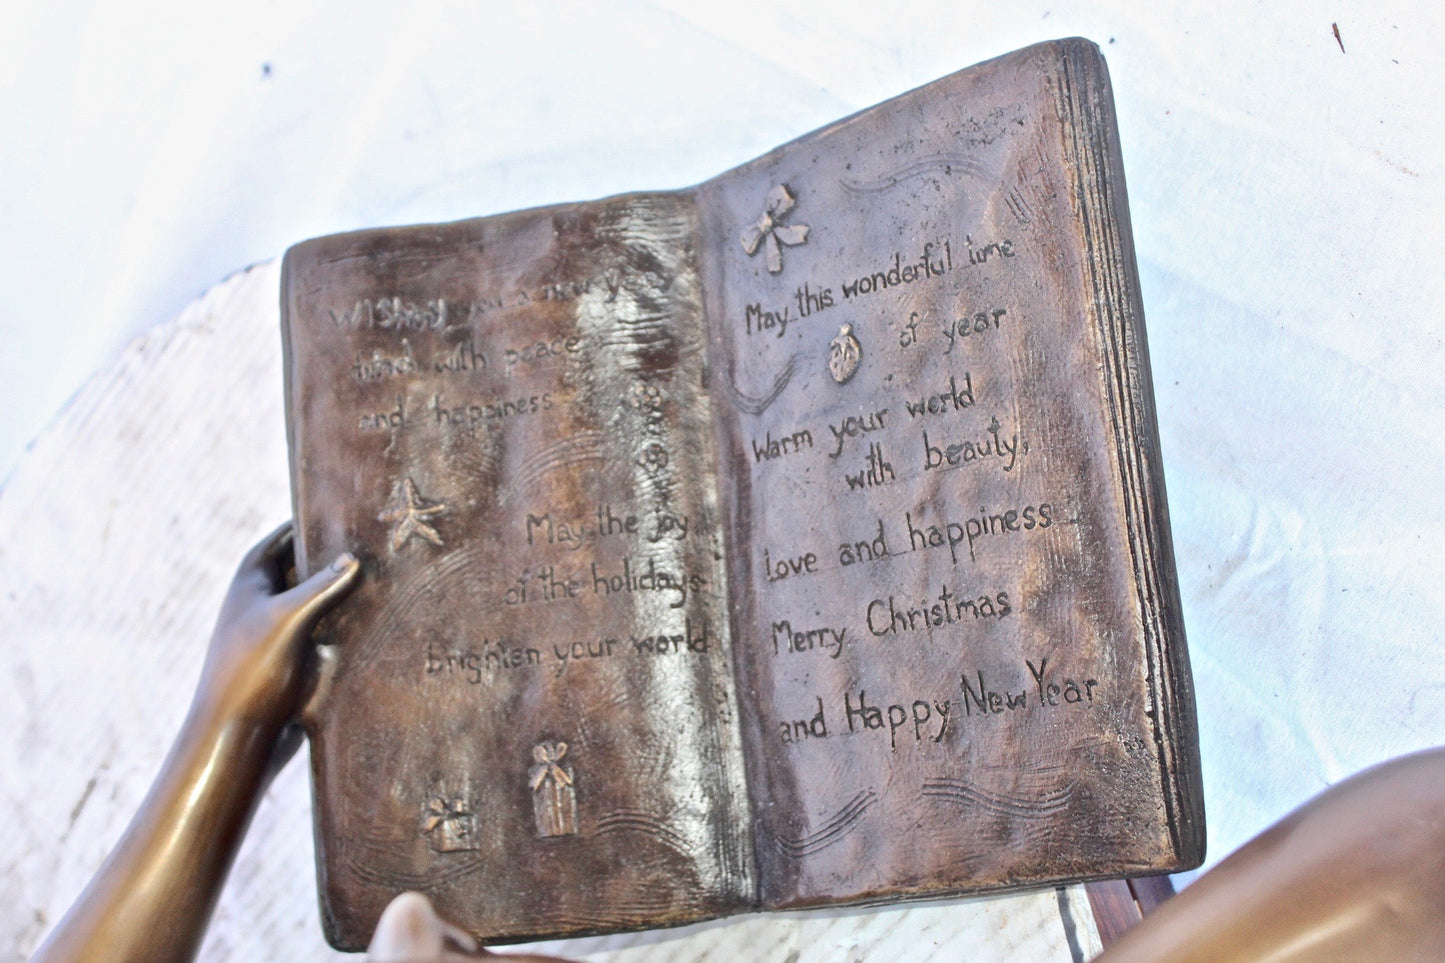 Wishing you a new year
with peace
and happiness
May the joy
of the holidays
brighten your world
May this wonderful time
of year
Warm your world
with beauty,
Love and happiness
Merry Christmas
and Happy New Year